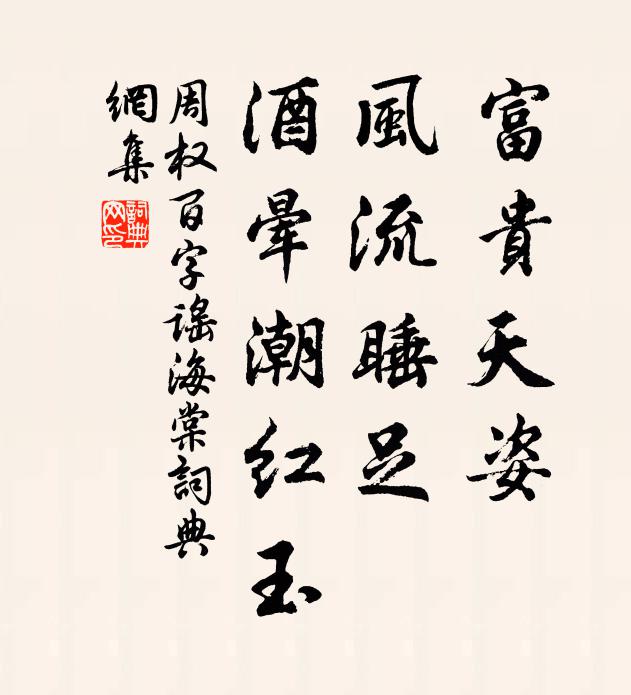 富貴天姿
風流睡足
酒暈潮红玉
周权百字謠海棠詞典
網集
詞典网印